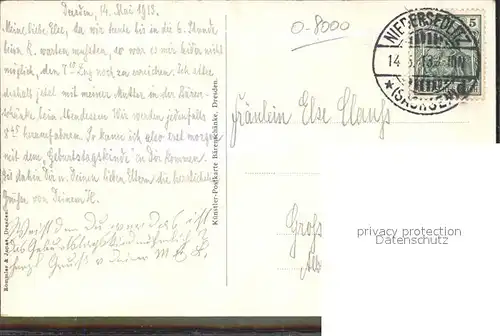 Dresden, 14. Mai 1913.
Meine liebe Else, da wir heute bis in die 6. Stunde
beim K. warten mußten, so war es mir leider nicht
möglich, den 7 Zug noch zu erreichen. Ich sitze
deshalb jetzt mit meiner Mutter in der Bären-
schänke beim Abendessen. Wir werden jedenfalls
8 45 herausfahren. So kann ich also erst morgen
mit dem „Geburtstagskinde" zu Dir kommen.
Bis dahin Dir u. Deinen lieben Eltern die herzlichsten
Grüßen von Deinem H.
Weißt denn Du wer das ist
das Geburtstagskind nämlich?
herzl. Gruß v. Deiner M.
Römmler & Jonas, Dresden
Künstler-Postkarte Bärenschänke, Dresden.
0-8000
NIEDERSEDLITZ
14.5.13.
*(SACHSEN)
5
Fräulein Else Clauß
Groß
privacy protection
Datenschutz